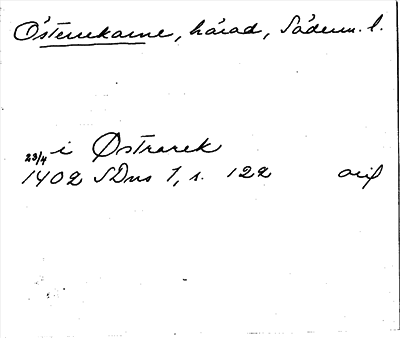 Österrekarne, härad, Söderm. l.
23/4 i Østrarek
1402 SDns 1, s. 122 orig